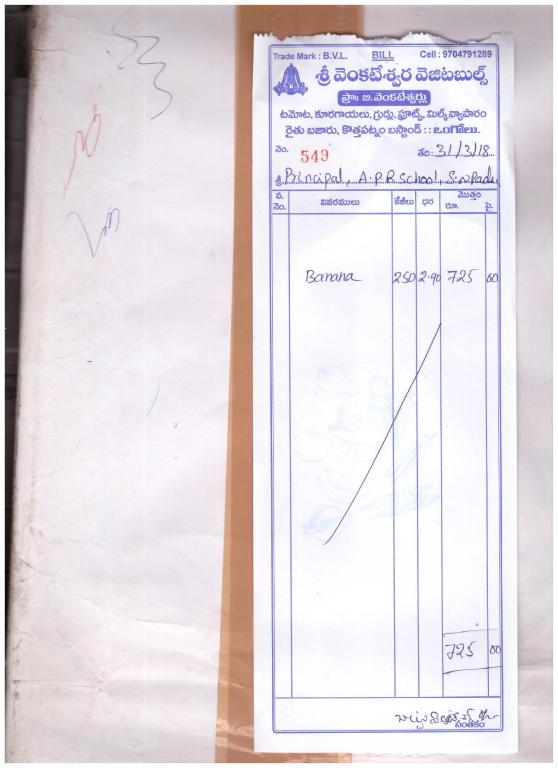 Trade Mark : B.V.L. BILL Cell : 9704791289
శ్రీ వెంకటేశ్వర వెజిటబుల్స్
ప్రొః బి.వెంకటేశ్వర్లు
టమోట, కూరగాయలు, గ్రుడ్లు, ఫ్రూట్స్, మిల్క్ వ్యాపారం
రైతు బజారు, కొత్తపట్నం బస్టాండ్ : : ఒంగోలు.
నెం. 549 తేది : 31/3/18
శ్రీ Principal, A.P.R School, S.N Padu
వ. నెం. వివరములు కేజీలు ధర మొత్తం రూ. పై.
Banana 250 2.90 725 00
725 00
సంతకం